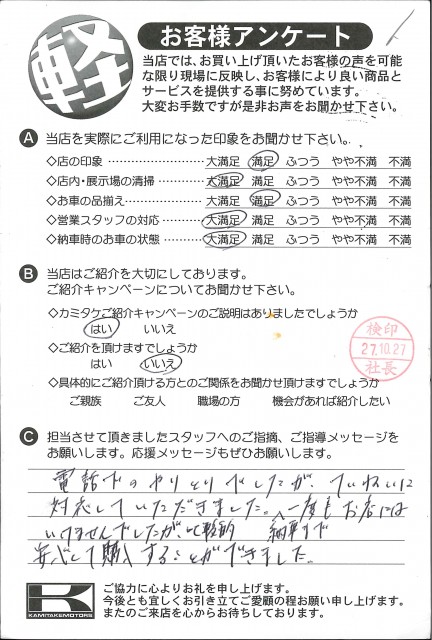 軽
お客様アンケート
当店では、お買い上げ頂いたお客様の声を可能
な限り現場に反映し、お客様により良い商品と
サービスを提供する事に努めています。
大変お手数ですが是非お声をお聞かせ下さい。
A 当店を実際にご利用になった印象をお聞かせ下さい。
◇店の印象 ………………… 大満足 満足 ふつう やや不満 不満
◇店内・展示場の清掃………… 大満足 満足 ふつう やや不満 不満
◇お車の品揃え……………… 大満足 満足 ふつう やや不満 不満
◇営業スタッフの対応 ………… 大満足 満足 ふつう やや不満 不満
◇納車時のお車の状態 ………… 大満足 満足 ふつう やや不満 不満
B 当店はご紹介を大切にしてあります。
ご紹介キャンペーンについてお聞かせ下さい。
◇カミタケご紹介キャンペーンのご説明はありましたでしょうか
はい いいえ
◇ご紹介を頂けますでしょうか
はい いいえ
◇具体的にご紹介頂ける方とのご関係をお聞かせ頂けますでしょうか
ご親族 ご友人 職場の方 機会があれば紹介したい
検印
27.10.27
社長
C 担当させて頂きましたスタッフへのご指摘、ご指導メッセージを
お願いします。応援メッセージもぜひお願いします。
電話でのやりとりでしたが、ていねいに
対応していただきました。一度もお店には
いけませんでしたが、比較的 納車まで
安心して購入することができました。
K
KAMITAKEMOTORS
ご協力に心よりお礼を申し上げます。
今後とも宜しくお引き立てご愛顧の程お願い申し上げます。
またのご来店を心からお待ちしております。